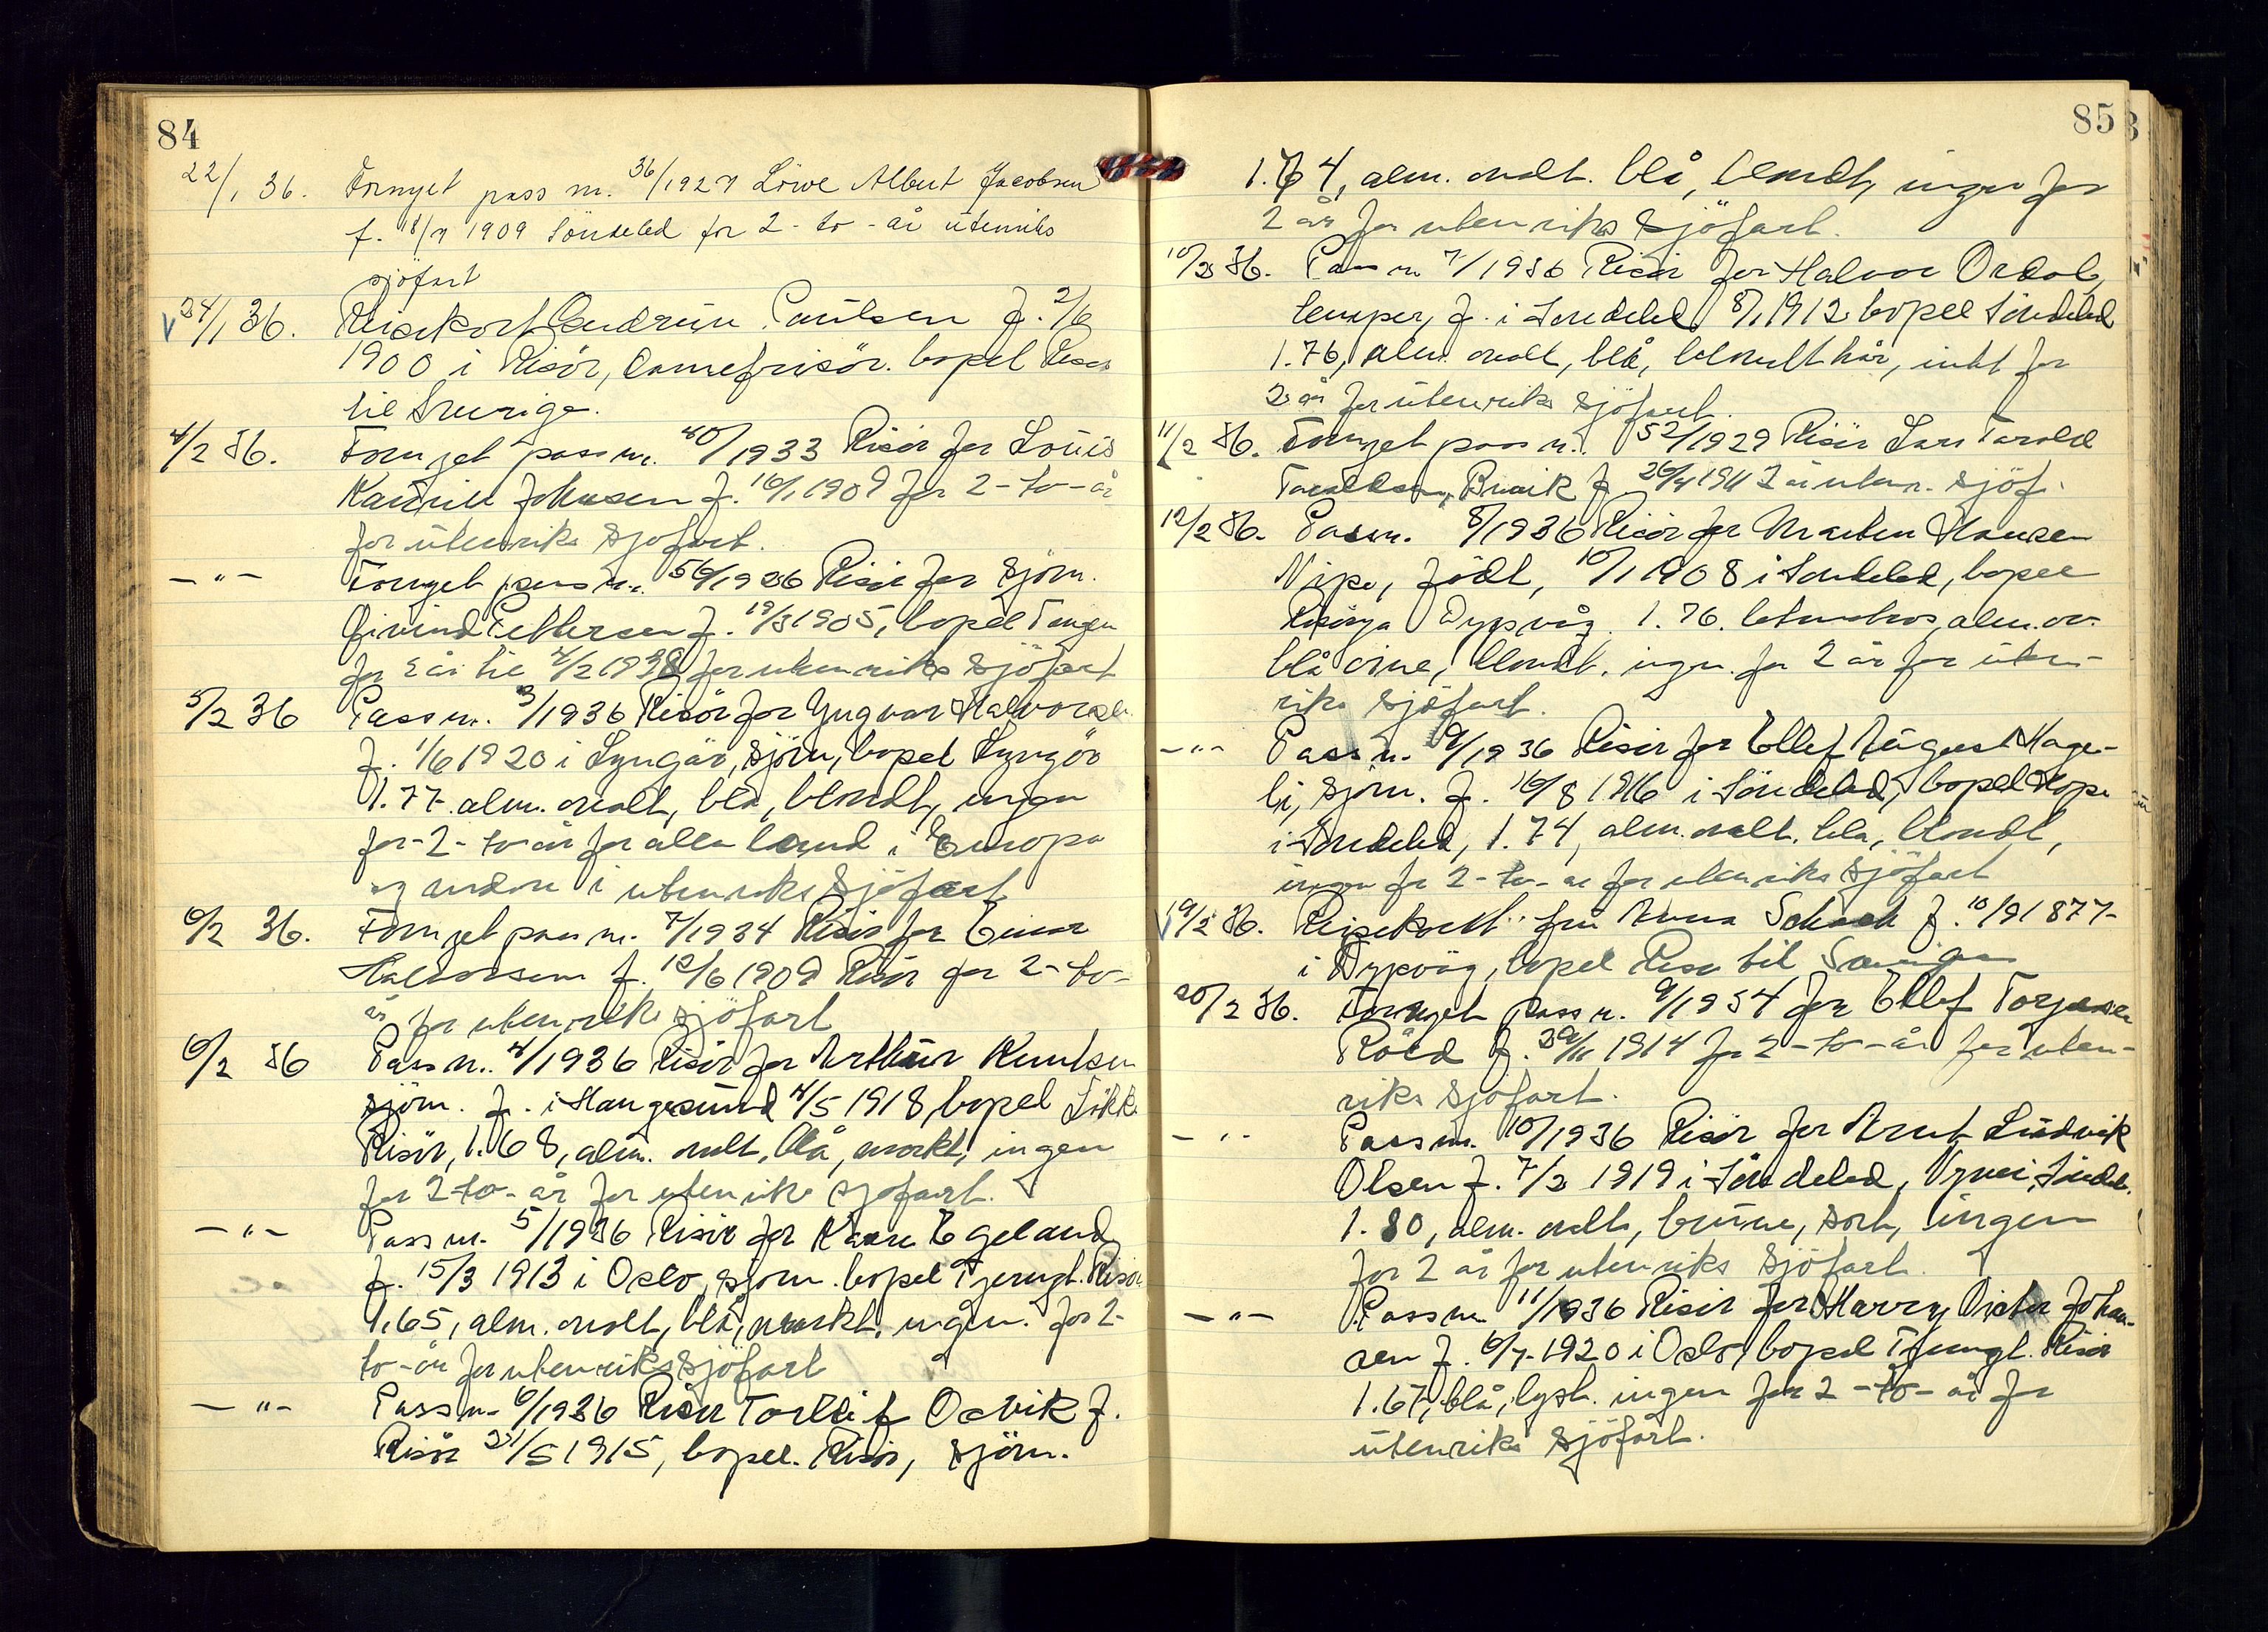 84
22/1 36. Fornyet pass nr. 36/1927 Löwe Albert Jacobsen
f. 18/7 1909 Söndeled for 2-to-år utenriks
sjöfart
V 24/1 36. Reisekort Gudrun Paulsen f. 2/6
1900 i Risör, damefrisör. bopel Risör
til Sverige.
4/2 36. Fornyet pass nr. 40/1933 Risör for Louis
Johnsen f. 16/1 1909 for 2-to-år
for utenriks sjöfart.
— " — Fornyet pass nr. 56/1936 Risör for Sjöm.
Öivind Pettersen f. 19/3 1905, bopel Tangen
for 2 år til 4/2 1938 for utenriks sjöfart
5/2 36 Pass nr. 3/1936 Risör for Yngvar Halvorsen
f. 1/6 1920 i Lyngör, sjöm, bopel Lyngör
1.77. alm. ovalt, blå, blondt, ingen
for-2-to-år for alle land i Europa
og andre i utenriks sjöfart
6/2 36. Fornyet pass nr. 7/1934 Risör for Einar
Halvorsen f. 12/6 1909 Risör for 2-to-
år for utenriks sjöfart
6/2 36 Pass nr. 4/1936 Risör for Arthur Knutsen
sjöm. f. i Haugesund 4/5 1918, bopel
Risör, 1.68, alm. ovalt, blå, mörkt, ingen
for 2-to-år for utenriks sjöfart.
— " — Pass nr. 5/1936 Risör for Kaare Egeland
f. 15/3 1913 i Oslo, sjöm. bopel Tjerngt. Risör
1,65, alm. ovalt, blå, mörkt, ingen. for 2-
to-år for utenriks sjöfart
— " — Pass nr. 6/1936 Risör Torleif Osvik f.
Risör 21/5 1915, bopel. Risör, sjöm.
85
1.64, alm. ovalt. blå, blondt, ingen for
2 år for utenriks sjöfart.
10/2 36. Pass nr. 7/1936 Risör for Halvor Ordal,
lemper, f. i Söndeled 8/1 1912 bopel Söndeled
1.76, alm. ovalt, blå, blondt hår, intet for
2 år for utenriks sjöfart.
11/2 36. Fornyet pass nr. 52/1929 Risör Lars Tarald
Taraldsen, f. 26/4 1911 2 år utenr. sjöf.
12/2 36. Pass nr. 8/1936 Risör for Marten Hansen
Nipe, födt, 10/1 1908 i Söndeled, bopel
Risöya Dypvåg. 1.76. alm. ov.
blå öine, blondt. ingen. for 2 år for uten-
riks sjöfart.
— " — Pass nr. 9/1936 Risör for Ellef August Hage-
li, sjöm. f. 16/8 1916 i Söndeled, bopel Hope
i Söndeled, 1.74, alm. ovalt. blå, blondt,
ingen for 2-to-år for utenriks sjöfart
V 19/2 36. Reisekort fru Anna Schack f. 10/9 1877
i Dypvåg, bopel Risör til Sverige
20/2 36. Fornyet pass nr. 9/1934 for Ellef Torjusen
Röed f. 29/11 1914 for 2-to-år for uten-
riks sjöfart.
— " — Pass nr. 10/1936 Risör for Arnt Ludvik
Olsen f. 7/2 1919 i Söndeled, Söndel.
1.80, alm. ovalt, brune, sort, ingen
for 2 år for utenriks sjöfart.
— " — Pass nr. 11/1936 Risör for Harry Victor Johan-
sen f. 6/7-1920 i Oslo, bopel Tjerngt. Risör
1.67, blå, lyst. ingen for 2-to-år for
utenriks sjöfart.